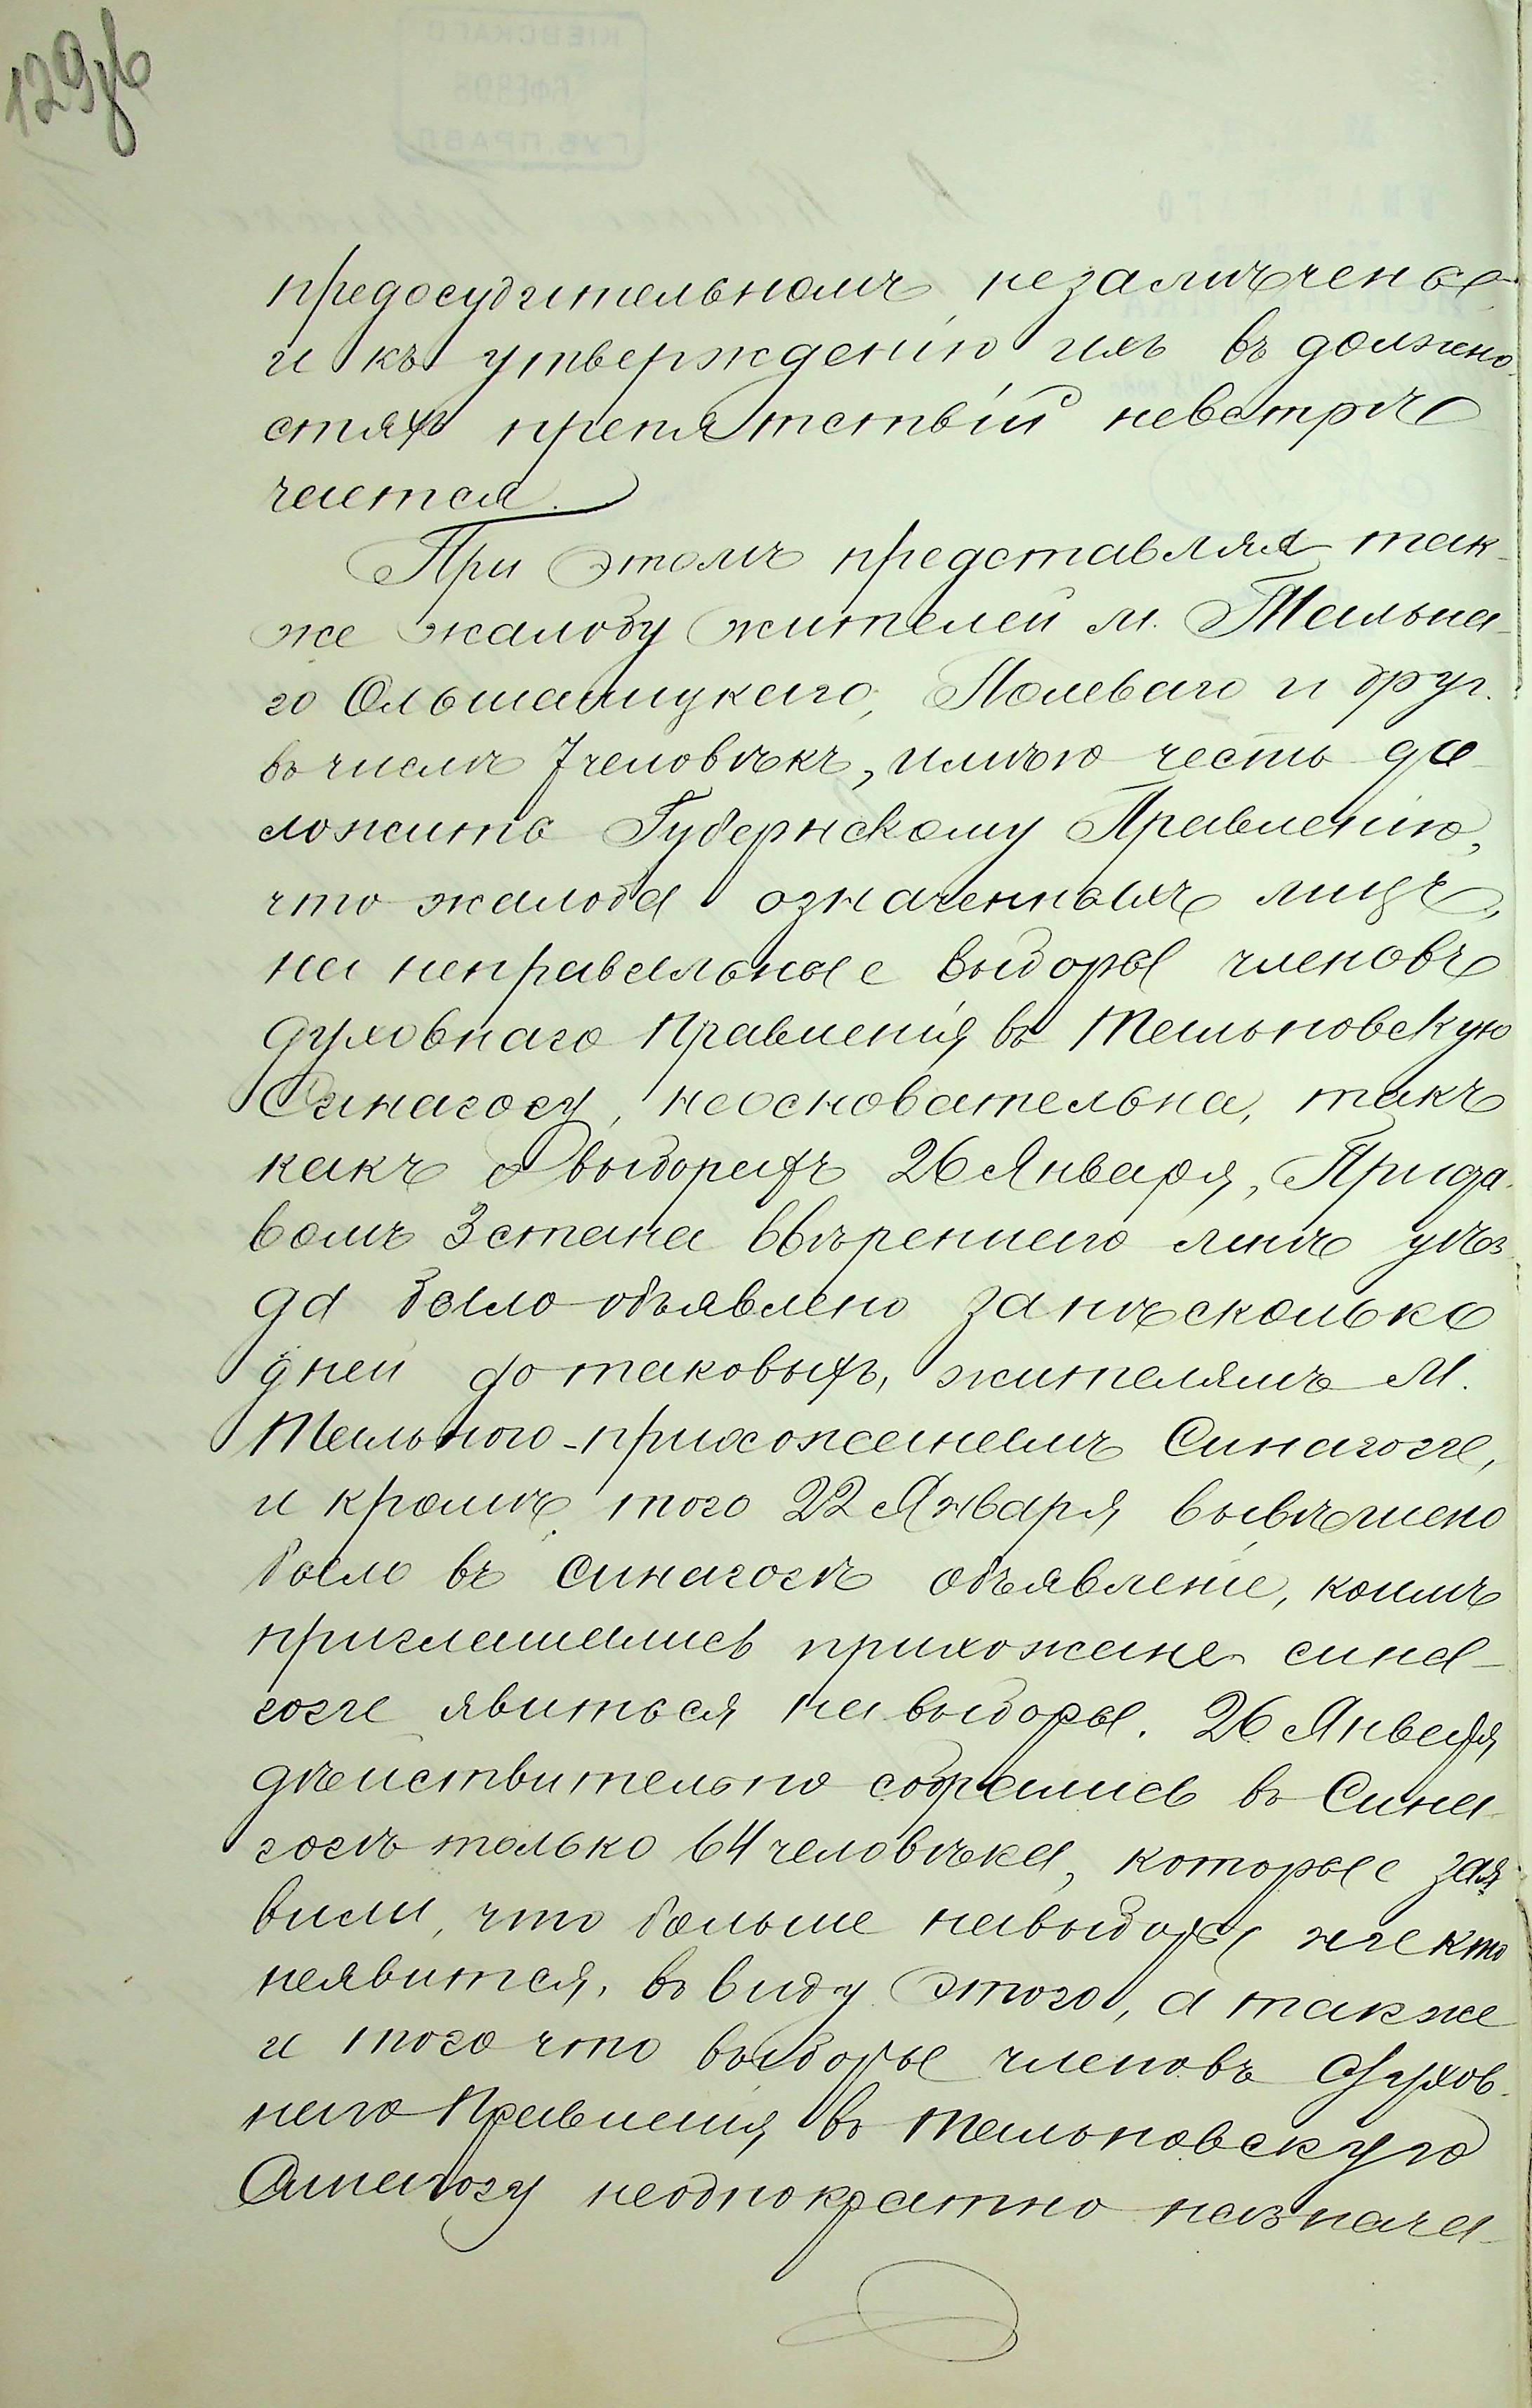 129об
предосудительномъ незамѣчены
и къ утвержденію ихъ въ должно-
стяхъ препятствій невстрѣ
чается.
При этомъ представляя так-
же жалобу жителей м. Тальна-
го Ольшаницкаго, Полеваго и друг.
въ числѣ 7 человѣкъ, имѣю честь до-
ложить Губернскому Правленію,
что жалоба означенныхъ лицъ,
на неправильные выборы членовъ
духовнаго Правленія въ Тальновскую
Синагогу, неосновательна, такъ
какъ о выборахъ 26 Января, Приста-
вомъ 3 стана ввѣреннаго мнѣ уѣз-
да было объявлено за нѣсколько
дней до таковыхъ, жителямъ М.
Тального-прихожанамъ Синагоги,
и кромѣ того 22 Января вывѣшено
было въ синагогѣ объявленіе, коимъ
приглашались прихожане сина-
гоги явиться на выборы. 26 Января
дѣйствительно собрались въ Сина-
гогѣ только 64 человѣка, которые зая
вили, что больше на выборы никто
неявится, въ виду этого, а также
и того что выборы членовъ Духов-
наго Правленія въ Тальновскую
Синагогу неоднократно назнача-